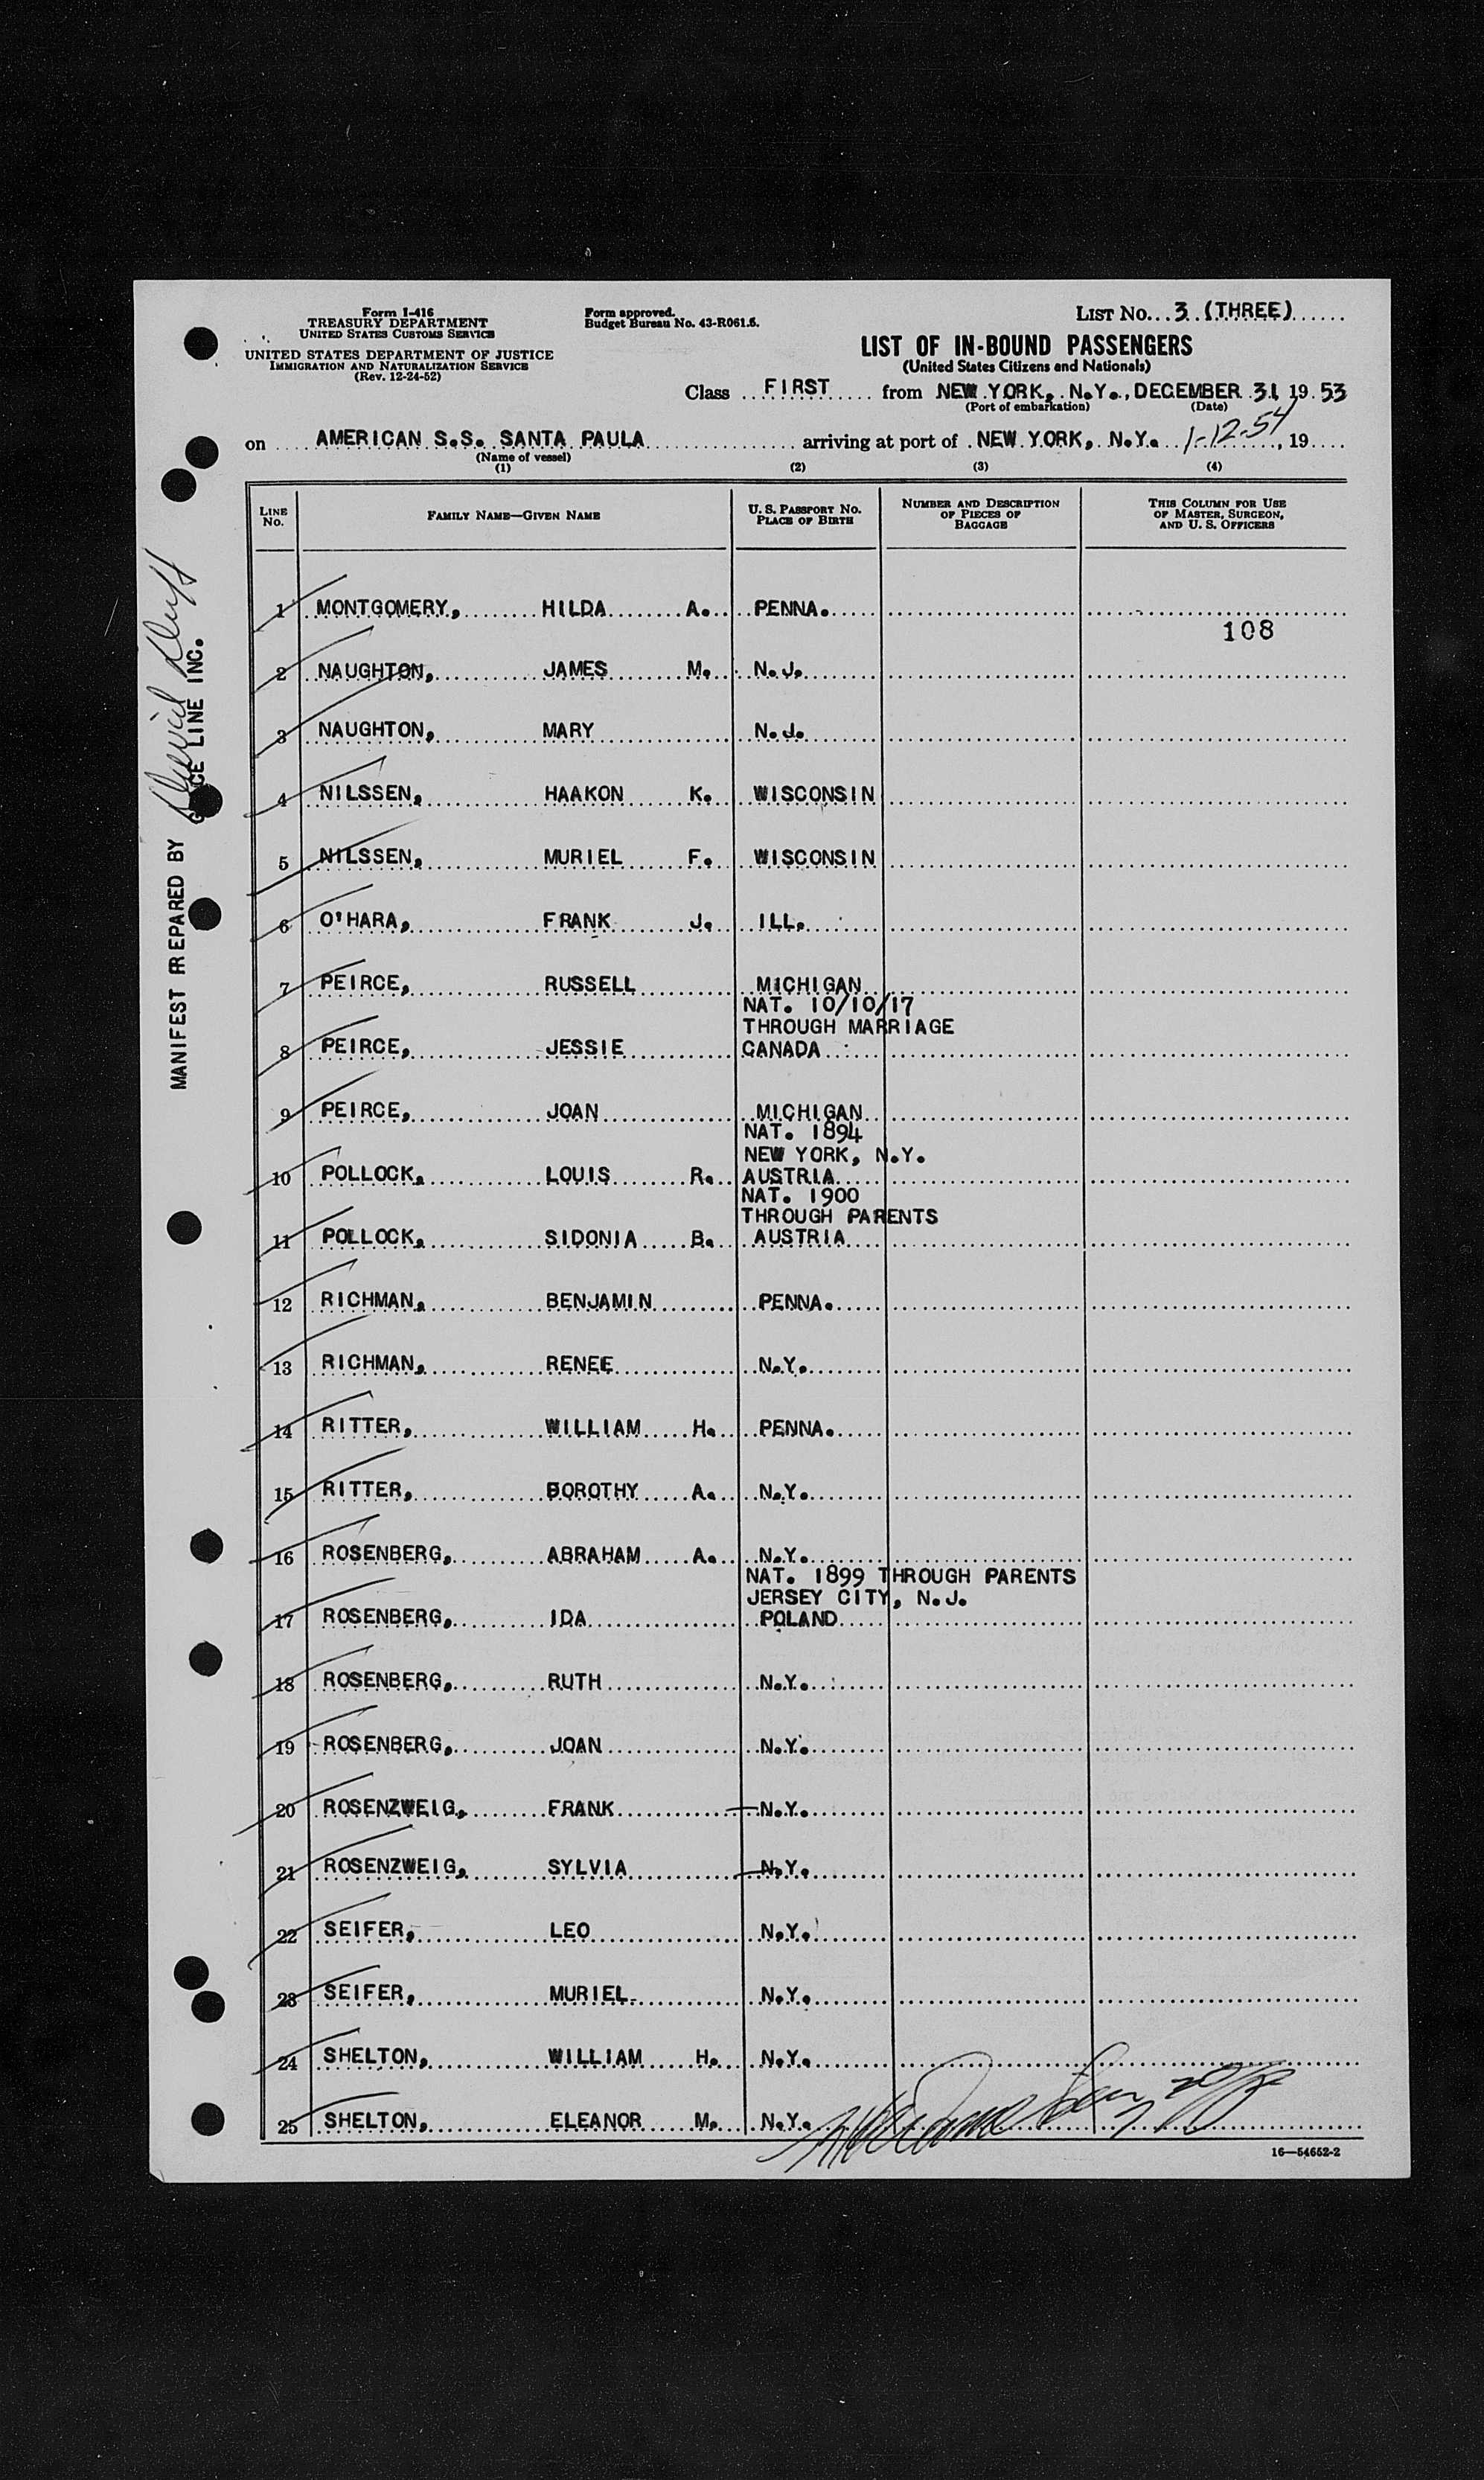 Form I-416
TREASURY DEPARTMENT
UNITED STATES CUSTOMS SERVICE
UNITED STATES DEPARTMENT OF JUSTICE
IMMIGRATION AND NATURALIZATION SERVICE
(Rev. 12-24-52)
Form approved.
Budget Bureau No. 43-R061.5.
LIST No. 3 (THREE)
LIST OF IN-BOUND PASSENGERS
(United States Citizens and Nationals)
Class FIRST from NEW YORK, N.Y., DECEMBER 31, 19 53
(Port of embarkation) (Date)
on AMERICAN S.S. SANTA PAULA arriving at port of NEW YORK, N.Y. 1-12-54, 19
(Name of vessel)
(1) (2) (3) (4)
LINE No. FAMILY NAME—GIVEN NAME U. S. PASSPORT NO. PLACE OF BIRTH NUMBER AND DESCRIPTION OF PIECES OF BAGGAGE THIS COLUMN FOR USE OF MASTER, SURGEON, AND U. S. OFFICERS
1 MONTGOMERY, HILDA A. PENNA.
108
2 NAUGHTON, JAMES M. N.J.
3 NAUGHTON, MARY N.J.
4 NILSSEN, HAAKON K. WISCONSIN
5 NILSSEN, MURIEL F. WISCONSIN
6 O'HARA, FRANK J. ILL.
7 PEIRCE, RUSSELL MICHIGAN
NAT. 10/10/17
THROUGH MARRIAGE
8 PEIRCE, JESSIE CANADA
9 PEIRCE, JOAN MICHIGAN
NAT. 1894
NEW YORK, N.Y.
10 POLLOCK, LOUIS R. AUSTRIA
NAT. 1900
THROUGH PARENTS
11 POLLOCK, SIDONIA B. AUSTRIA
12 RICHMAN, BENJAMIN PENNA.
13 RICHMAN, RENEE N.Y.
14 RITTER, WILLIAM H. PENNA.
15 RITTER, DOROTHY A. N.Y.
16 ROSENBERG, ABRAHAM A. N.Y.
NAT. 1899 THROUGH PARENTS
JERSEY CITY, N.J.
17 ROSENBERG, IDA POLAND
18 ROSENBERG, RUTH N.Y.
19 ROSENBERG, JOAN N.Y.
20 ROSENZWEIG, FRANK N.Y.
21 ROSENZWEIG, SYLVIA N.Y.
22 SEIFER, LEO N.Y.
23 SEIFER, MURIEL N.Y.
24 SHELTON, WILLIAM H. N.Y.
25 SHELTON, ELEANOR M. N.Y.
16—54652-2
MANIFEST PREPARED BY
LINE INC.